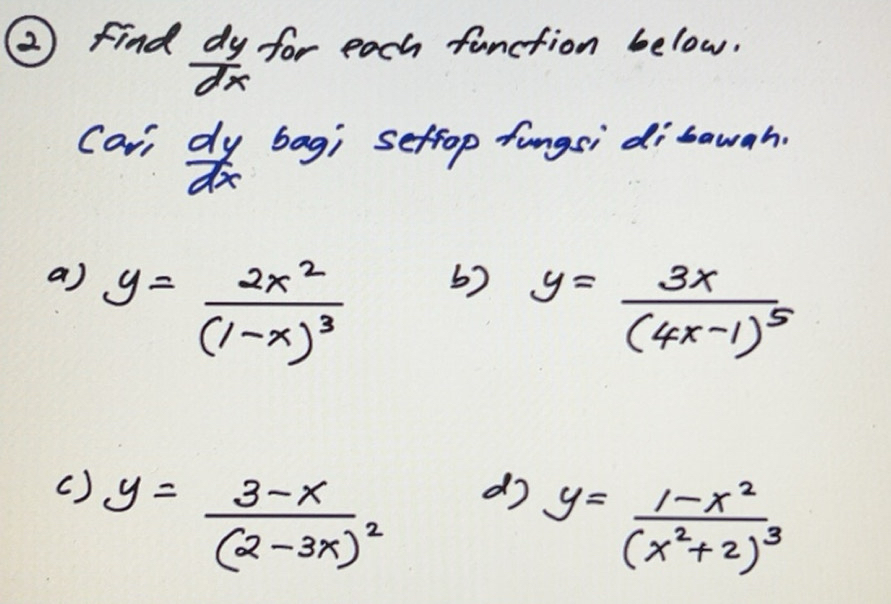 2 Find dy/dx for each function below.
Cari dy/dx bagi settap fungsi di bawah.
a) y = 2x²/(1-x)³ b) y = 3x/(4x-1)⁵
c) y = 3-x/(2-3x)² d) y = 1-x²/(x²+2)³